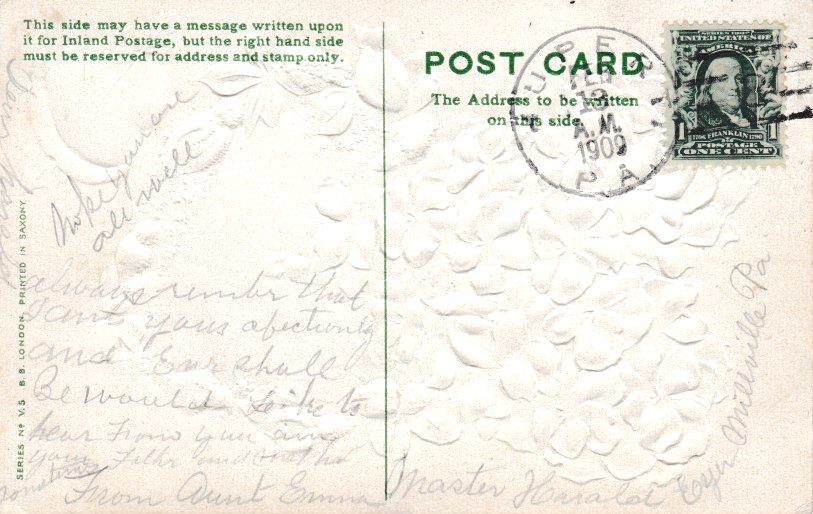 This side may have a message written upon
it for Inland Postage, but the right hand side
must be reserved for address and stamp only.
POST CARD
The Address to be written
on this side.
RUPERT
FEB
13
A.M.
1909
PA
SERIES 1902
UNITED STATES OF
AMERICA
1 1706 FRANKLIN 1790 1
POSTAGE
ONE CENT
SERIES Nº V. 5 B. B. LONDON, PRINTED IN SAXONY
you are
all well
always rember that
I am yours afectionly
and Eur shall
Be would like to
hear from you
your and
sometimes
From Aunt Emma
Master Harald
Eyer Millville Pa